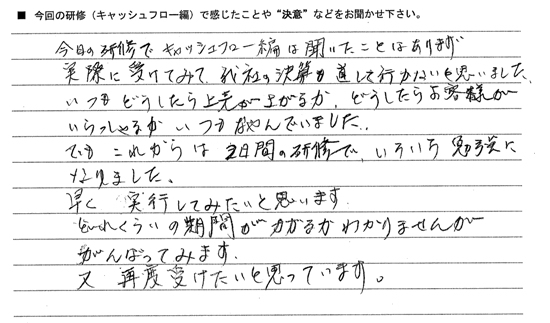 ■ 今回の研修（キャッシュフロー編）で感じたことや“決意”などをお聞かせ下さい。
今日の研修でキャッシュフロー編は聞いたことはありますが
実際に受けてみて、我社の決算も直して行かないと思いました。
いつもどうしたら上売が上がるか、どうしたらお客様が
いらっしゃるかいつもなやんでいました。
でもこれからは2日間の研修で、いろいろ勉強に
なりました。
早く実行してみたいと思います。
どれくらいの期間がかがるかわかりませんが
がんばってみます。
又再度受けたいと思っています。